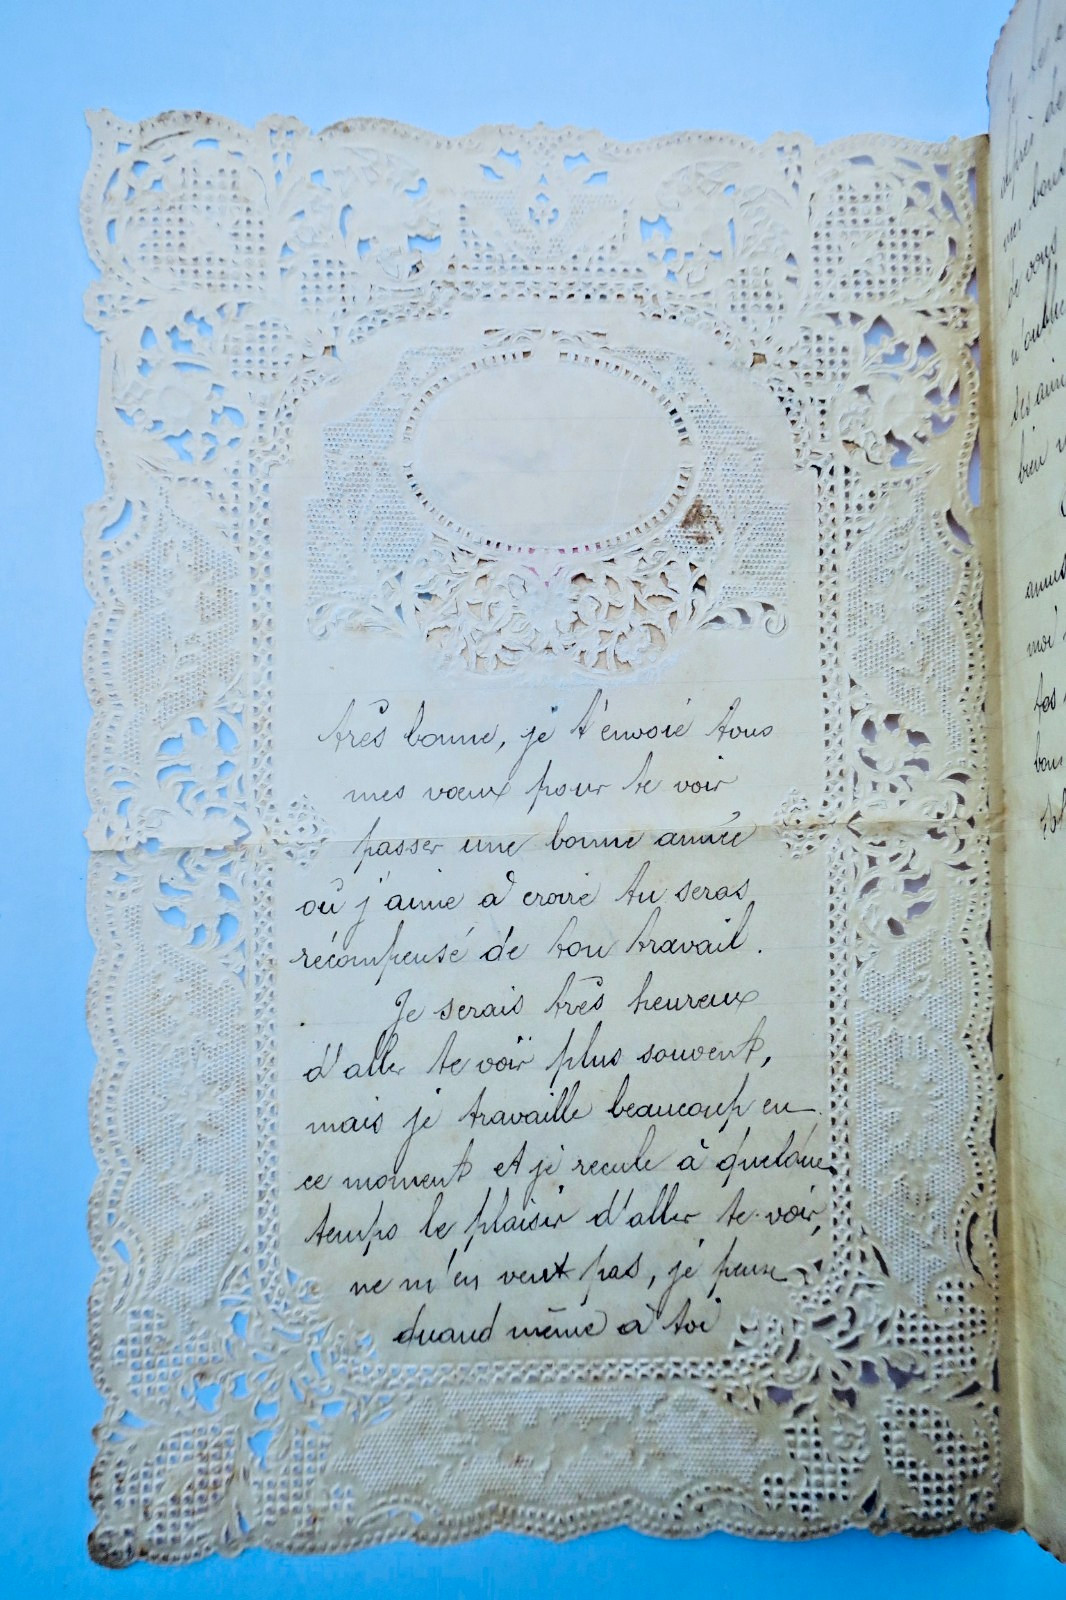 très bonne, je t'envoie tous
mes vœux pour te voir
passer une bonne année
où j'aime à croire tu seras
récompensé de ton travail.
Je serais très heureux
d'aller te voir plus souvent,
mais je travaille beaucoup en
ce moment et je recule à quelque
temps le plaisir d'aller te voir,
ne m'en veut pas, je pense
quand même à toi
de vous
bien
moi
tes